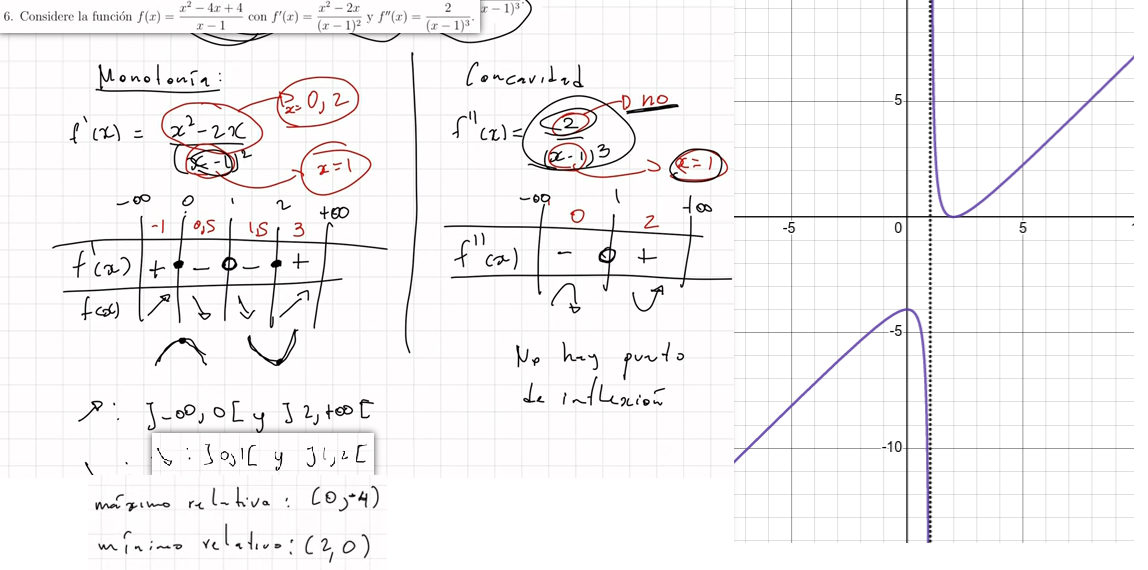 6. Considere la función f(x) = (x² − 4x + 4)/(x − 1) con f′(x) = (x² − 2x)/(x − 1)² y f″(x) = 2/(x − 1)³.
x − 1)³
Monotonía:
f'(x) = (x² − 2x)/(x − 1)²
x = 0, 2
x = 1
−∞ 0 1 2 +∞
-1 0,5 1,5 3
f'(x) + − − +
f(x) ↗ ↘ ↘ ↗
↗: ]−∞, 0[ y ]2, +∞[
↘: ]0,1[ y ]1,2[
máximo relativo: (0, -4)
mínimo relativo: (2, 0)
Concavidad
f''(x) = 2/(x − 1)³
no
x = 1
−∞ 1 +∞
0 2
f''(x) − +
No hay punto
de inflexión
5
-5 0 5
-5
-10